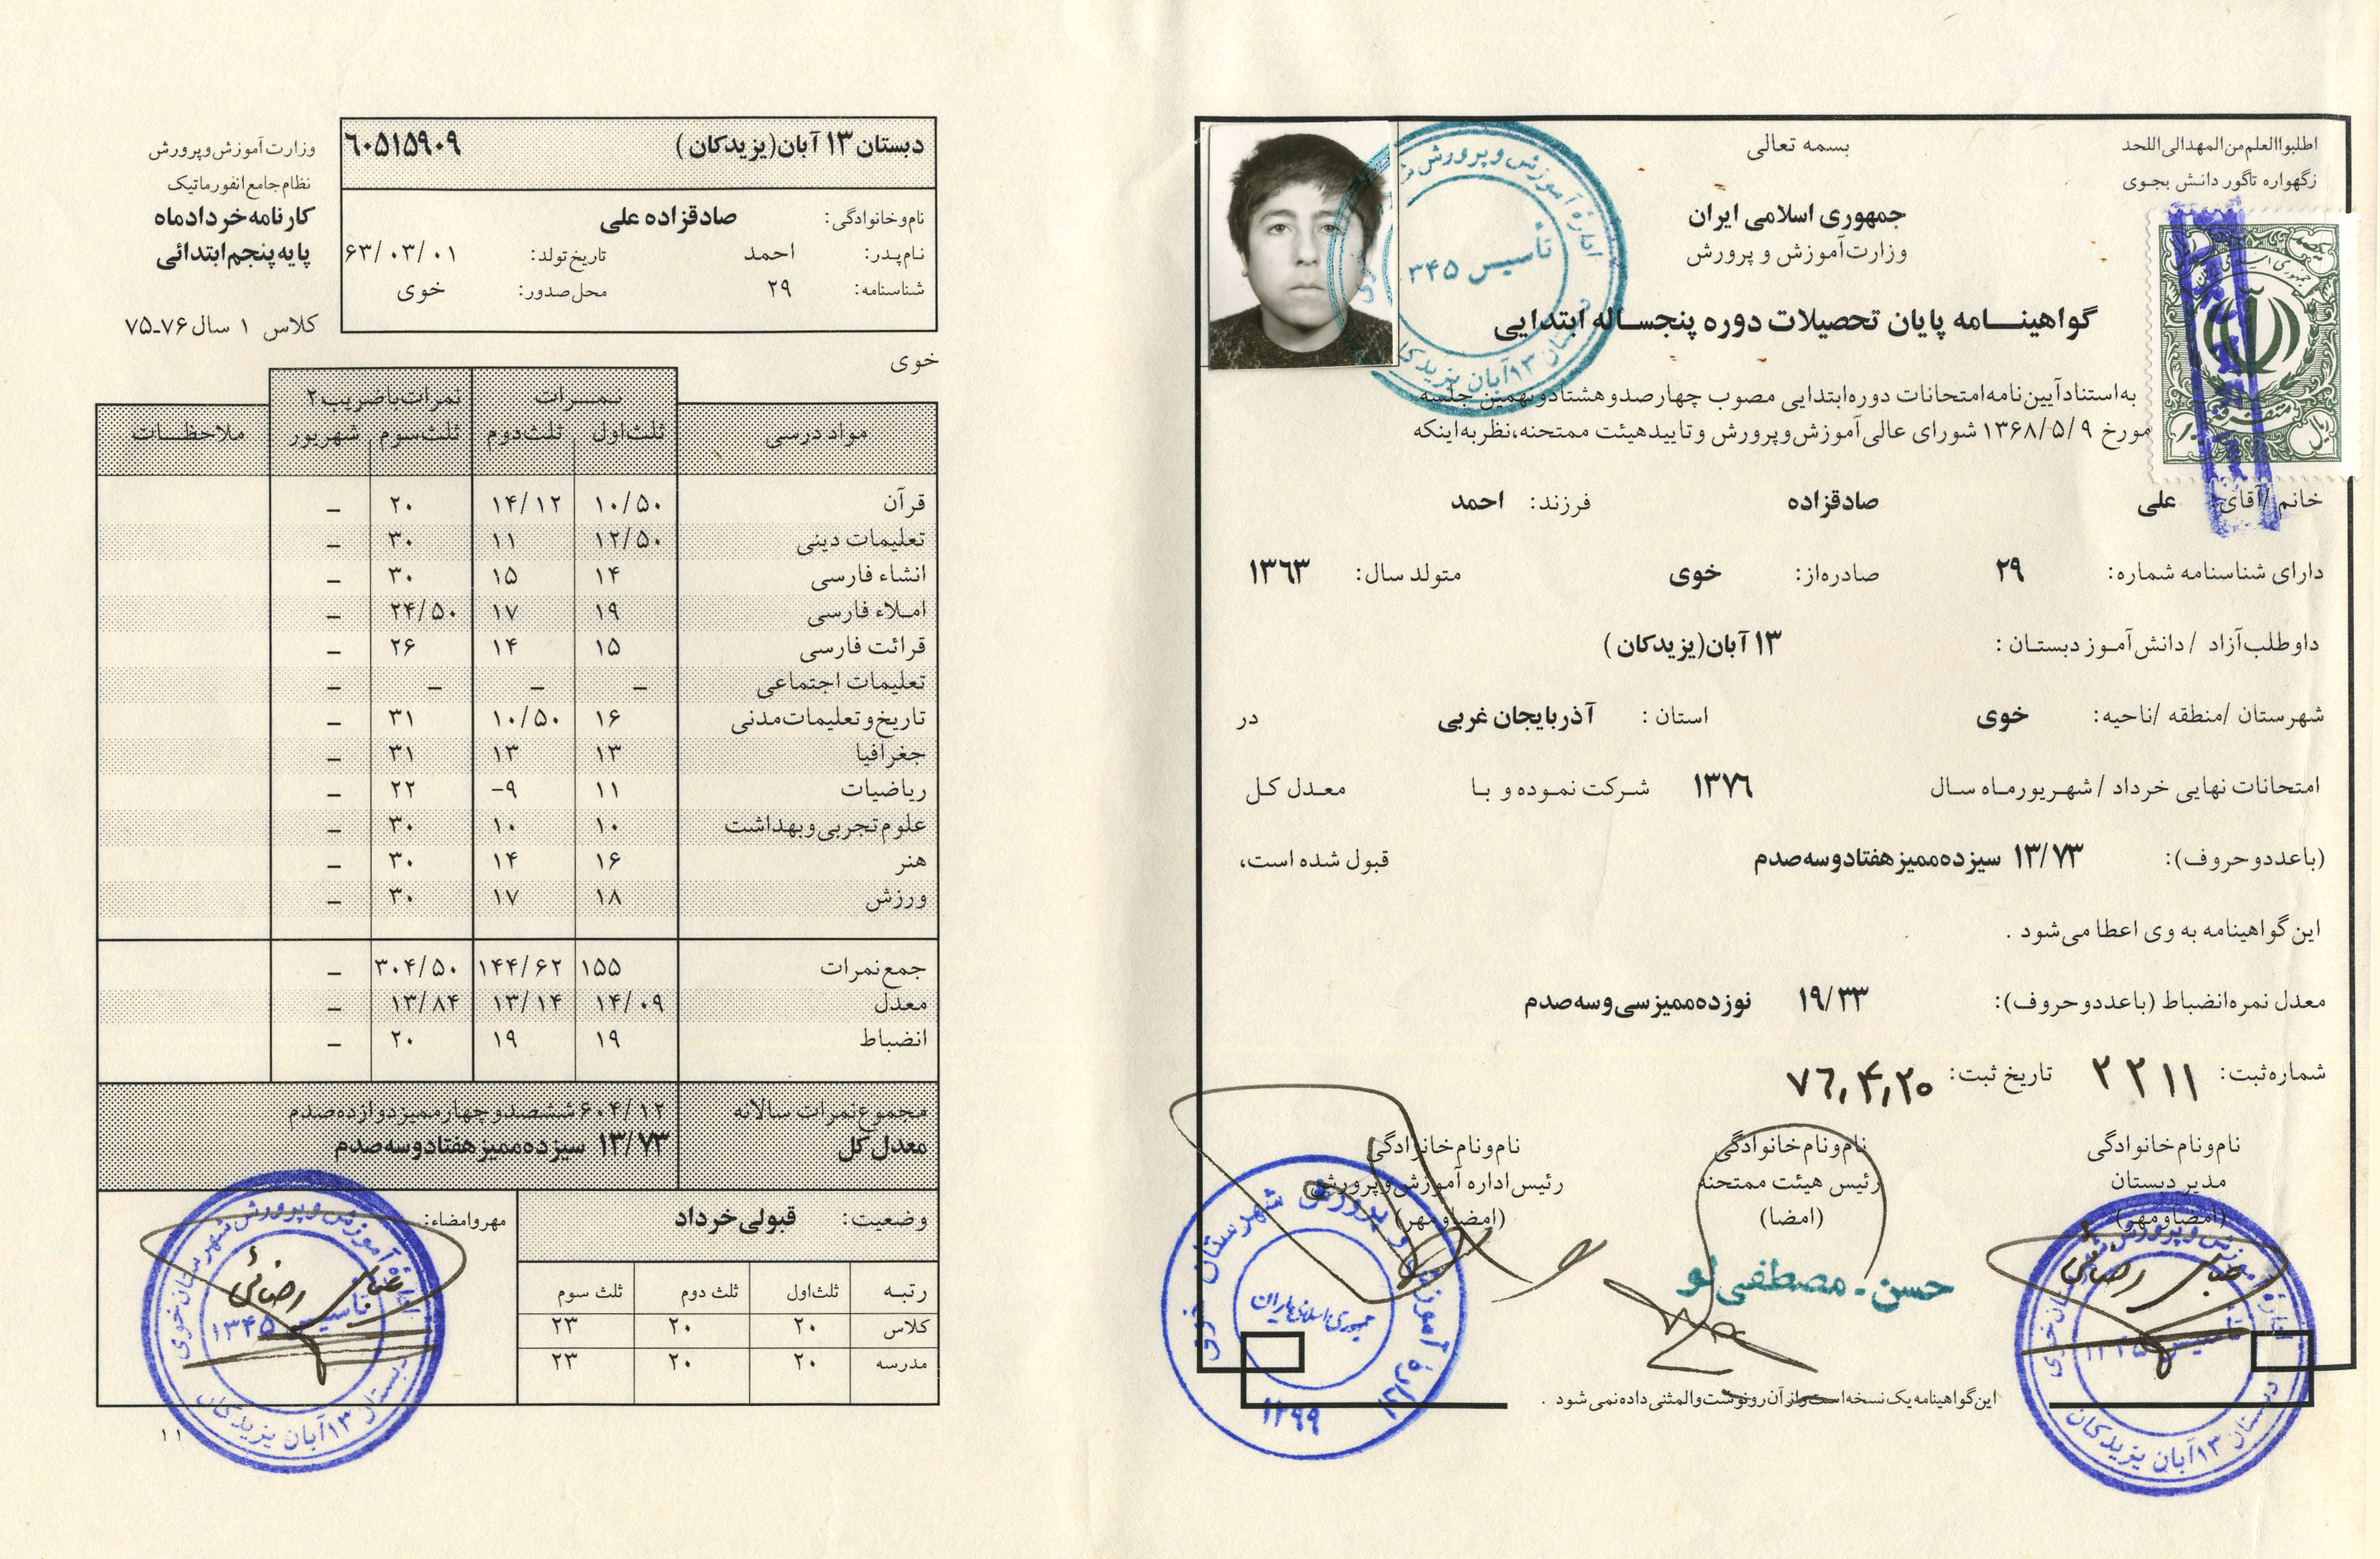 اطلبوا العلم من المهد الی اللحد
زگهواره تاگور دانش بجوی
بسمه تعالی
جمهوری اسلامی ایران
وزارت آموزش و پرورش
گواهینامه پایان تحصیلات دوره پنجساله ابتدایی
به استناد آیین نامه امتحانات دوره ابتدایی مصوب چهارصد و هشتاد و نهمین جلسه
مورخ ۱۳۶۸/۵/۹ شورای عالی آموزش و پرورش و تایید هیئت ممتحنه، نظر به اینکه
خانم / آقای: علی صادقزاده فرزند: احمد
دارای شناسنامه شماره: ۲۹ صادره از: خوی متولد سال: ۱۳۶۳
داوطلب آزاد / دانش آموز دبستان: ۱۳ آبان (یزیدکان)
شهرستان / منطقه / ناحیه: خوی استان: آذربایجان غربی در
امتحانات نهایی خرداد / شهریورماه سال ۱۳۷۶ شرکت نموده و با معدل کل
(باعدد و حروف): ۱۳/۷۳ سیزده ممیز هفتاد و سه صدم قبول شده است،
این گواهینامه به وی اعطا می شود .
معدل نمره انضباط (باعدد و حروف): ۱۹/۳۳ نوزده ممیز سی و سه صدم
شماره ثبت: ۲۲۱۱ تاریخ ثبت: ۷۶,۴,۲۰
نام و نام خانوادگی نام و نام خانوادگی نام و نام خانوادگی
مدیر دبستان رئیس هیئت ممتحنه رئیس اداره آموزش و پرورش
(امضا و مهر) (امضا) (امضا و مهر)
عباس رضائی
حسن - مصطفی لو
اداره آموزش و پرورش شهرستان خوی
جمهوری اسلامی ایران
۱۲۹۹
اداره آموزش و پرورش شهرستان خوی
تأسیس ۱۳۴۵
دبستان ۱۳ آبان یزیدکان
این گواهینامه یک نسخه است و از آن رونوشت و المثنی داده نمی شود .
اداره آموزش و پرورش
تأسیس ۳۴۵
دبستان ۱۳ آبان یزیدکان
دبستان ۱۳ آبان (یزیدکان) ۶۰۵۱۵۹۰۹
نام و خانوادگی: صادقزاده علی
نام پدر: احمد تاریخ تولد: ۶۳/۰۳/۰۱
شناسنامه: ۲۹ محل صدور: خوی
وزارت آموزش و پرورش
نظام جامع انفورماتیک
کارنامه خردادماه
پایه پنجم ابتدائی
کلاس ۱ سال ۷۶-۷۵
خوی
نمرات نمرات با ضریب ۲
مواد درسی ثلث اول ثلث دوم ثلث سوم شهریور ملاحظات
قرآن ۱۰/۵۰ ۱۴/۱۲ ۲۰ –
تعلیمات دینی ۱۲/۵۰ ۱۱ ۳۰ –
انشاء فارسی ۱۴ ۱۵ ۳۰ –
املاء فارسی ۱۹ ۱۷ ۲۴/۵۰ –
قرائت فارسی ۱۵ ۱۴ ۲۶ –
تعلیمات اجتماعی – – – –
تاریخ و تعلیمات مدنی ۱۶ ۱۰/۵۰ ۳۱ –
جغرافیا ۱۳ ۱۳ ۳۱ –
ریاضیات ۱۱ ۹- ۲۲ –
علوم تجربی و بهداشت ۱۰ ۱۰ ۳۰ –
هنر ۱۶ ۱۴ ۳۰ –
ورزش ۱۸ ۱۷ ۳۰ –
جمع نمرات ۱۵۵ ۱۴۴/۶۲ ۳۰۴/۵۰ –
معدل ۱۴/۰۹ ۱۳/۱۴ ۱۳/۸۴ –
انضباط ۱۹ ۱۹ ۲۰ –
مجموع نمرات سالانه ۶۰۴/۱۲ ششصد و چهار ممیز دوازده صدم
معدل کل ۱۳/۷۳ سیزده ممیز هفتاد و سه صدم
وضعیت: قبولی خرداد
مهر و امضاء:
رتبه ثلث اول ثلث دوم ثلث سوم
کلاس ۲۰ ۲۰ ۲۳
مدرسه ۲۰ ۲۰ ۲۳
اداره آموزش و پرورش شهرستان خوی
عباس رضائی
تأسیس ۱۳۴۵
دبستان ۱۳ آبان یزیدکان
۱۱